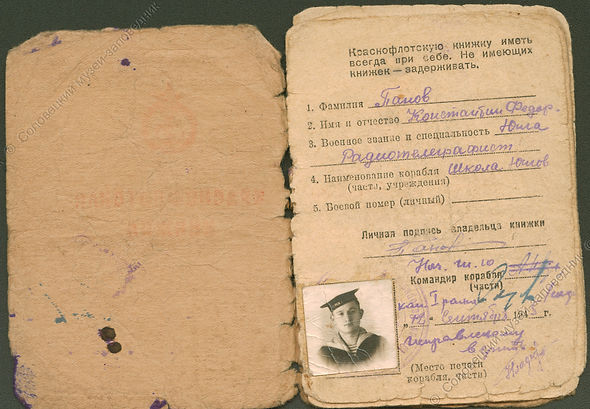 Краснофлотскую книжку иметь
всегда при себе. Не имеющих
книжек — задерживать.
1. Фамилия Попов
2. Имя и отчество Константин Федор.
3. Военное звание и специальность Юнга
Радиотелеграфист
4. Наименование корабля Школа Юнгов
(части, учреждения)
5. Боевой номер (личный)
Личная подпись владельца книжки
Попов
Командир корабля
(части)
Сентября 194 г.
исправленному
(Место печати
корабля, части)
© Соловецкий музей-заповедник
© Соловецкий музей-заповедник
© Соловецкий музей-заповедник